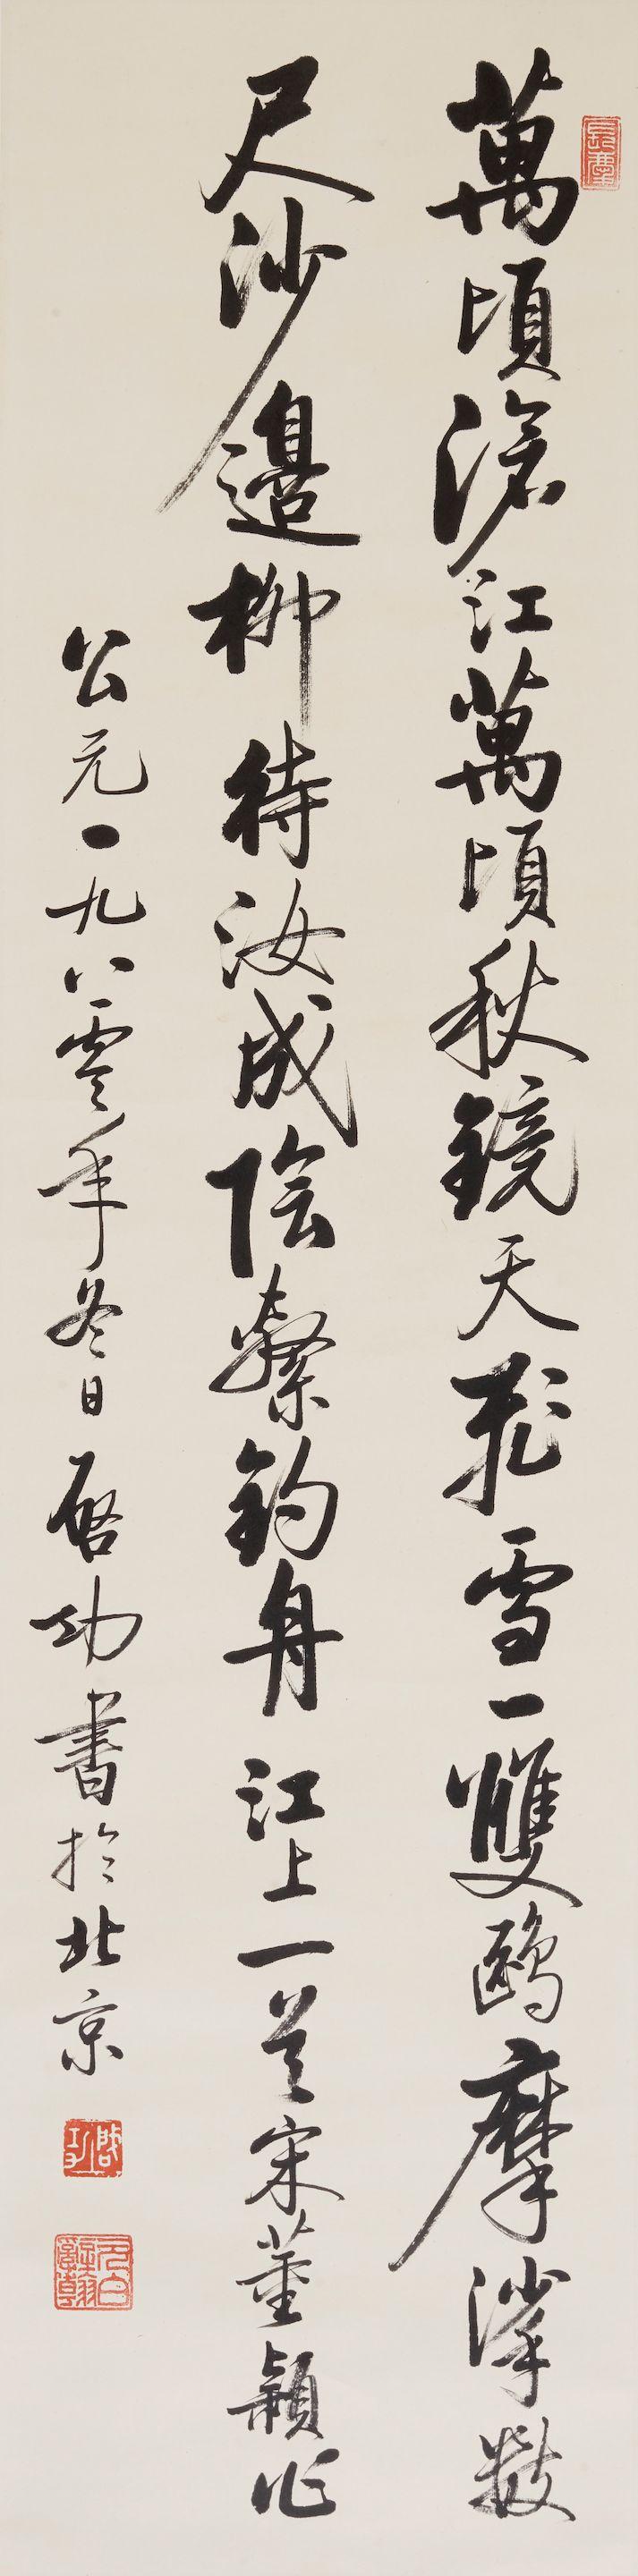 萬頃滄江萬頃秋鏡天飛雪一雙鷗摩挲數
尺沙邊柳待汝成陰繫釣舟 江上一首宋董穎作
公元一九八零年冬日 啓功書於北京
啟功
元白